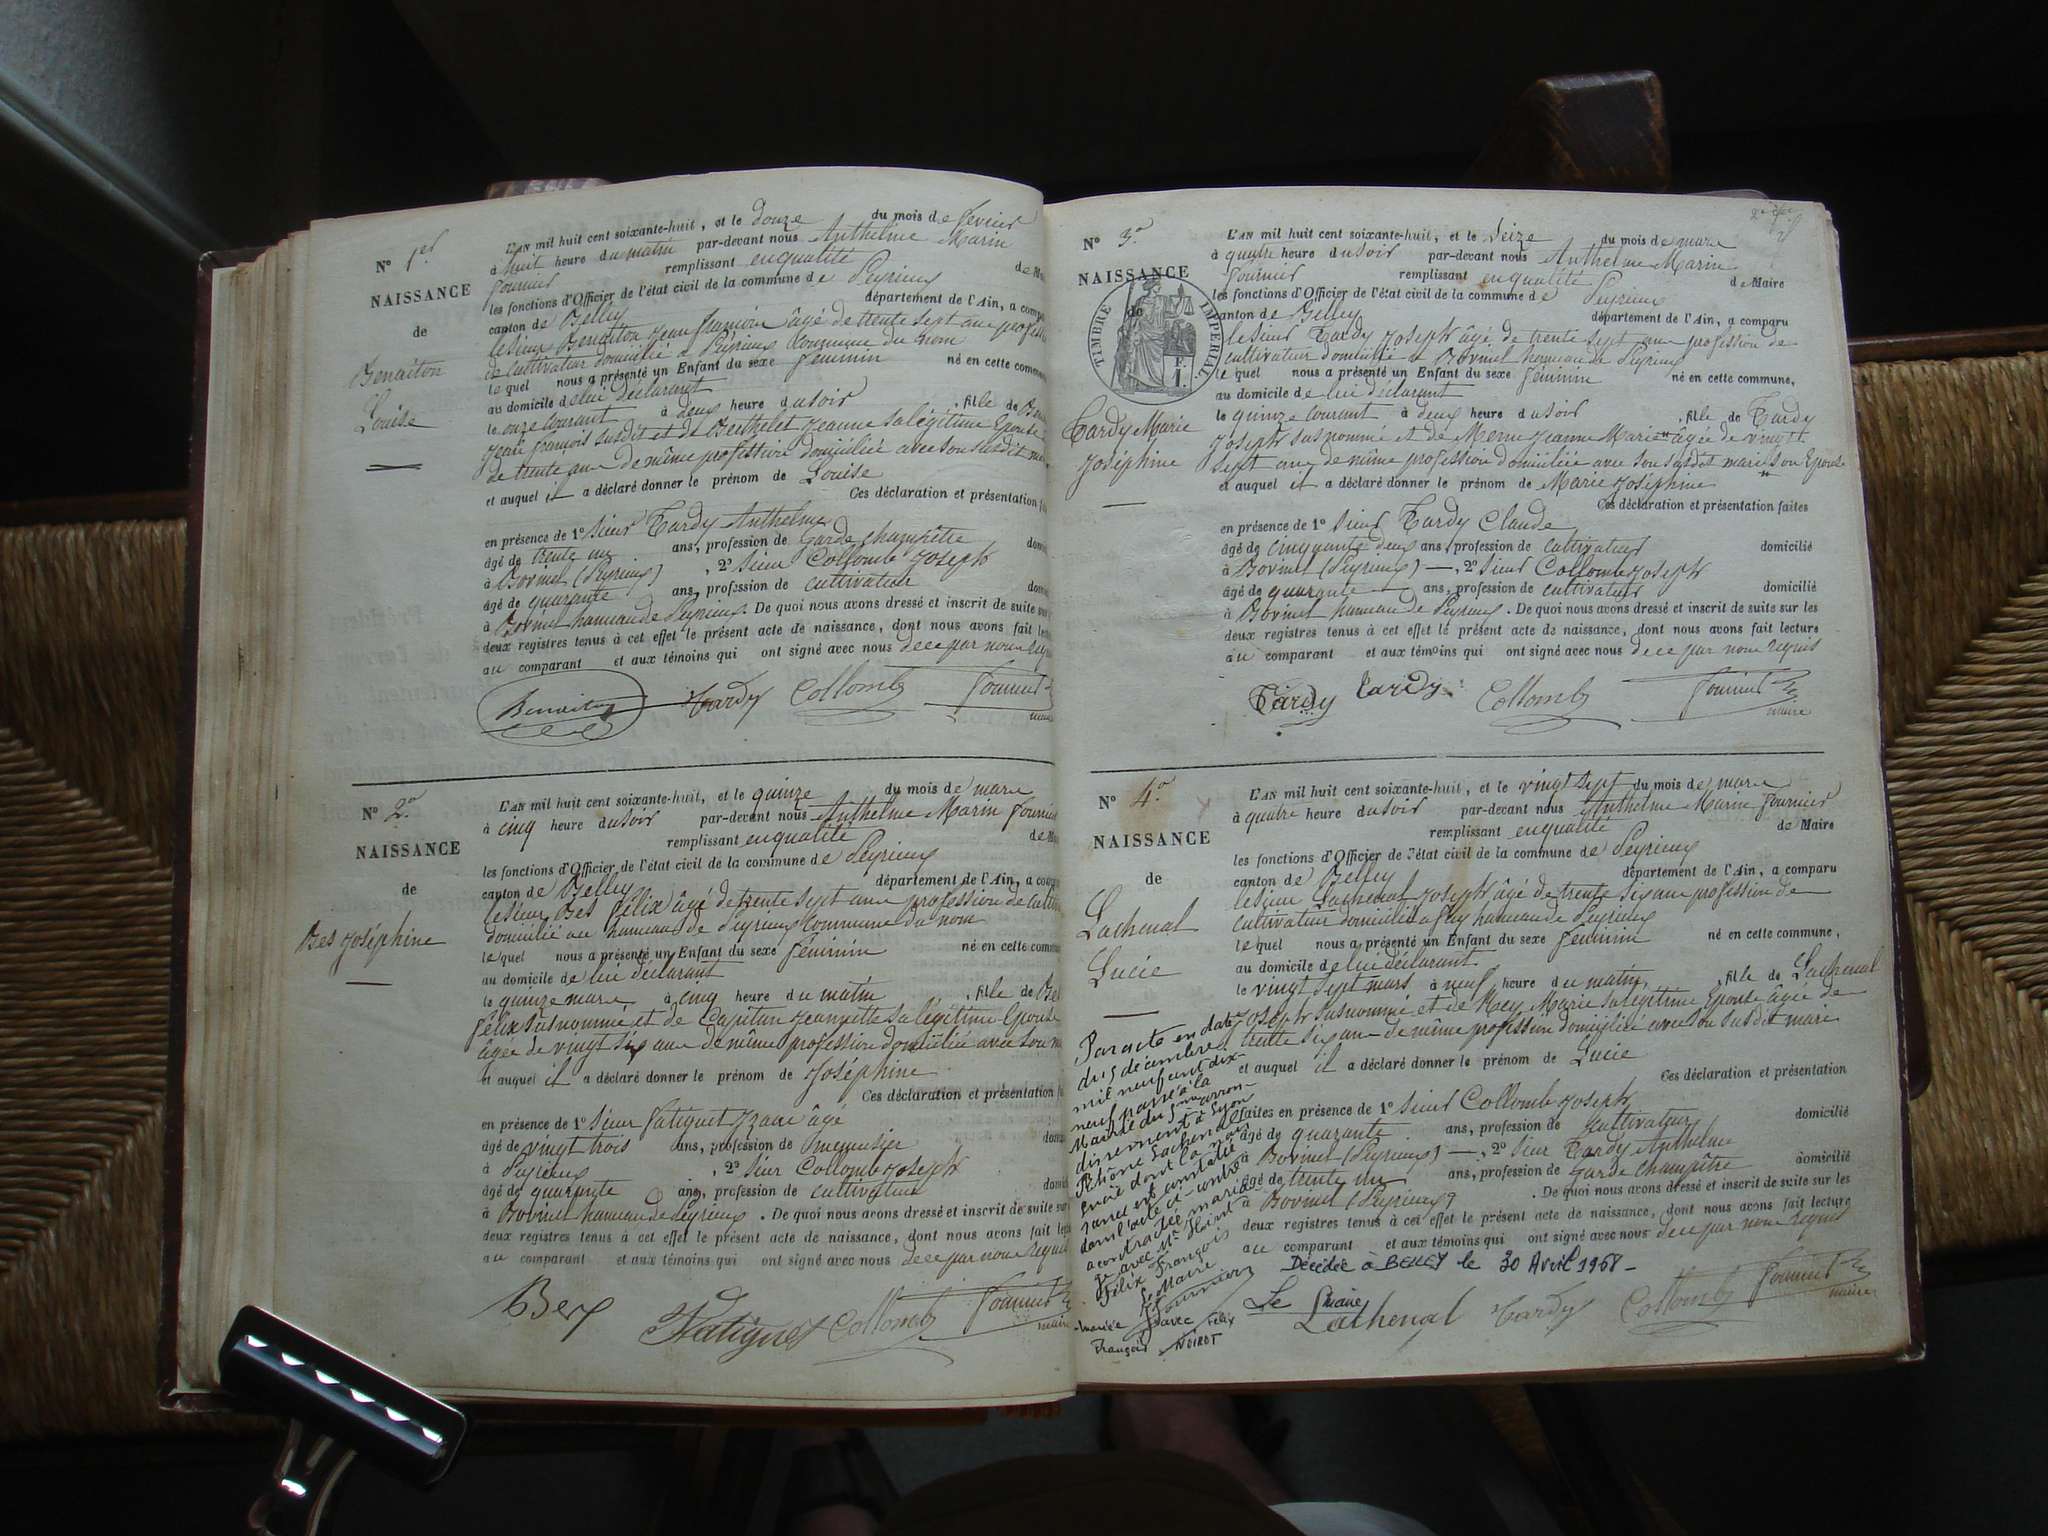 N° 1er
NAISSANCE
de
Benaiton
Louise
L'AN mil huit cent soixante-huit, et le douze du mois de février
à huit heure du matin par-devant nous Anthelme Marin
fournier remplissant en qualité de M
les fonctions d'Officier de l'état civil de la commune de Peyrieux
canton de Belley département de l'Ain, a compa
le sieur Benaiton Jean françois âgé de trente sept ans profess
de cultivateur domicilié à Peyrieux commune du nom
le quel nous a présenté un Enfant du sexe féminin né en cette commun
au domicile de lui déclarant
le onze courant à deux heure du soir , fille de
Jean françois susdit et de Berthelet Jeanne sa légitime Epouse
de trente ans de même profession domiciliée avec son susdit
et auquel il a déclaré donner le prénom de Louise
Ces déclaration et présentation
en présence de 1° sieur Tardy Anthelme
âgé de trente un ans, profession de Garde champêtre domi
à Bovinel (Peyrieux) , 2° sieur Collomb Joseph
âgé de quarante ans, profession de cultivateur dom
à Bovinel hameau de Peyrieux. De quoi nous avons dressé et inscrit de suite sur
deux registres tenus à cet effet le présent acte de naissance, dont nous avons fait le
au comparant et aux témoins qui ont signé avec nous de ce par nous requi
Benaiton Tardy Collomb fournier
maire
N° 2e
NAISSANCE
de
Bes Joséphine
L'AN mil huit cent soixante-huit, et le quinze du mois de mars
à cinq heure du soir par-devant nous Anthelme Marin fournier
remplissant en qualité de M
les fonctions d'Officier de l'état civil de la commune de Peyrieux
canton de Belley département de l'Ain, a compa
le sieur Bes félix âgé de trente sept ans profession de cultiv
domicilié au hameau de Peyrieux commune du nom
le quel nous a présenté un Enfant du sexe féminin né en cette commun
au domicile de lui déclarant
le quinze mars à cinq heure du matin , fille de Bes
félix susnommé et de Capitan Jeannette sa légitime Epouse
âgée de vingt six ans de même profession domiciliée avec son
et auquel il a déclaré donner le prénom de Joséphine
Ces déclaration et présentation
en présence de 1° sieur fatiguet âgé
âgé de vingt trois ans, profession de menuisier dom
à Peyrieux , 2° sieur Collomb Joseph
âgé de quarante ans, profession de cultivateur domi
à Bovinel hameau de Peyrieux. De quoi nous avons dressé et inscrit de suite sur
deux registres tenus à cet effet le présent acte de naissance, dont nous avons fait le
au comparant et aux témoins qui ont signé avec nous de ce par nous requi
Bes Fatiguet Collomb fournier
maire
N° 3e
NAISSANCE
de
TIMBRE IMPERIAL
F.
1.
Tardy Marie
Joséphine
L'AN mil huit cent soixante-huit, et le seize du mois de mars
à quatre heure du soir par-devant nous Anthelme Marin
fournier remplissant en qualité de Maire
les fonctions d'Officier de l'état civil de la commune de Peyrieux
canton de Belley département de l'Ain, a comparu
le sieur Tardy Joseph âgé de trente sept ans profession de
cultivateur domicilié à Bovinel hameau de Peyrieux
le quel nous a présenté un Enfant du sexe féminin né en cette commune,
au domicile de lui déclarant
le quinze courant à deux heure du soir , fille de Tardy
Joseph susnommé et de Jeanne Marie âgée de vingt
sept ans de même profession domiciliée avec son susdit mari son Epouse
et auquel il a déclaré donner le prénom de Marie Joséphine
Ces déclaration et présentation faites
en présence de 1° sieur Tardy Claude
âgé de cinquante deux ans, profession de cultivateur domicilié
à Bovinel (Peyrieux) —, 2° sieur Collomb Joseph
âgé de quarante ans, profession de cultivateur domicilié
à Bovinel hameau de Peyrieux. De quoi nous avons dressé et inscrit de suite sur les
deux registres tenus à cet effet le présent acte de naissance, dont nous avons fait lecture
au comparant et aux témoins qui ont signé avec nous de ce par nous requis
Tardy Tardy Collomb fournier
maire
N° 4e
NAISSANCE
de
Lachenal
Lucie
L'AN mil huit cent soixante-huit, et le vingt sept du mois de mars
à quatre heure du soir par-devant nous Anthelme Marin fournier
remplissant en qualité de Maire
les fonctions d'Officier de l'état civil de la commune de Peyrieux
canton de Belley département de l'Ain, a comparu
le sieur Lachenal Joseph âgé de trente six ans profession de
cultivateur domicilié à hameau de Peyrieux
le quel nous a présenté un Enfant du sexe féminin né en cette commune,
au domicile de lui déclarant
le vingt sept mars à neuf heure du matin, , fille de Lachenal
Joseph susnommé et de Rey Marie sa légitime Epouse âgée de
trente six ans de même profession domiciliée avec son susdit mari
et auquel il a déclaré donner le prénom de Lucie
Ces déclaration et présentation
faites en présence de 1° sieur Collomb Joseph
âgé de quarante ans, profession de cultivateur domicilié
à Bovinel (Peyrieux) —, 2° sieur Tardy Anthelme
âgé de trente un ans, profession de Garde champêtre domicilié
à Bovinel (Peyrieux) . De quoi nous avons dressé et inscrit de suite sur les
deux registres tenus à cet effet le présent acte de naissance, dont nous avons fait lecture
au comparant et aux témoins qui ont signé avec nous de ce par nous requis
Décédée à BELLEY le 30 Avril 1968 -
Le Maire
Lachenal Tardy Collomb fournier
maire
Par acte en date
du 5 décembre
mil neuf cent dix-
neuf passé à la
Mairie du 5me arron-
dissement à Lyon
Rhône Lachenal
Lucie dont la nais
sance est constatée
dans l'acte ci-contre
a contracté maria
ge avec Mr Noirot
Félix François
Le Maire
Fournier
mariée avec Félix
François NOIROT